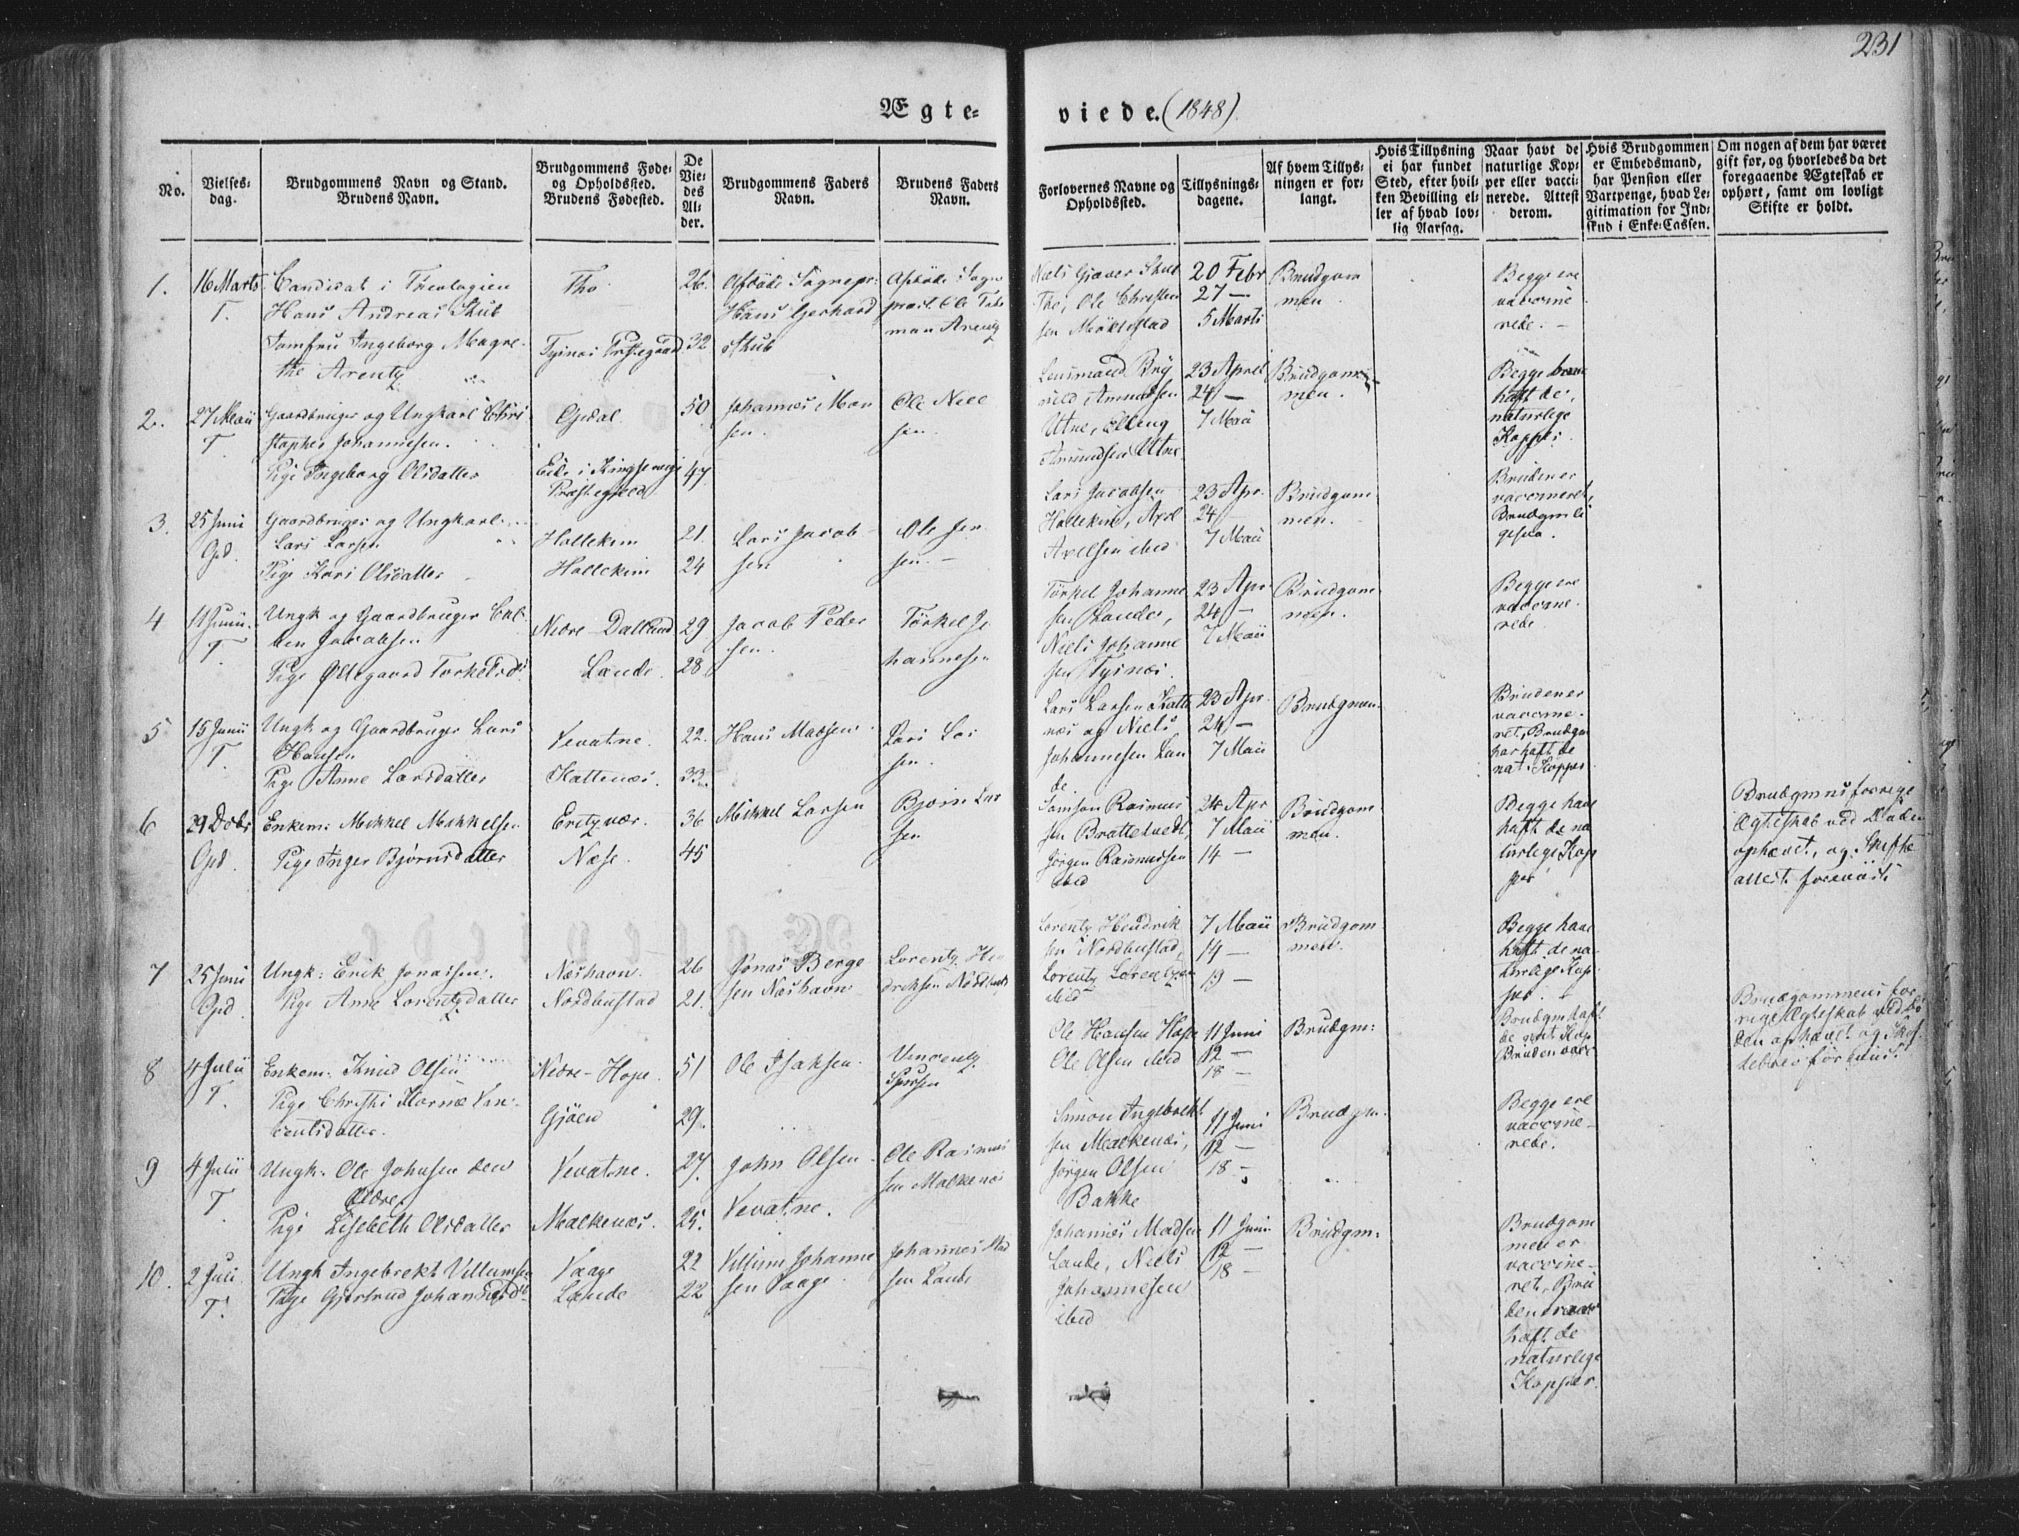 231
Ægte-
viede. (1848).
No.
Vielses-
dag.
Brudgommens Navn og Stand.
Brudens Navn.
Brudgommens Føde-
og Opholdssted.
Brudens Fødested.
De
Vie-
des
Al-
der.
Brudgommens Faders
Navn.
Brudens Faders
Navn.
Forlovernes Navne og
Opholdssted.
Tillysnings-
dagene.
Af hvem Tillys-
ningen er for-
langt.
Hvis Tillysning
ei har fundet
Sted, efter hvil-
ken Bevilling el-
ler af hvad lov-
lig Aarsag.
Naar havt de
naturlige Kop-
per eller vacci-
nerede. Attest
derom.
Hvis Brudgommen
er Embedsmand,
har Pension eller
Vartpenge, hvad Le-
gitimation for Ind-
skud i Enke-Cassen.
Om nogen af dem har været
gift før, og hvorledes da det
foregaaende Ægteskab er
ophørt, samt om lovligt
Skifte er holdt.
1.
16 Marts
T.
Candidat i Theologien
Hans Andreas
Jomfru Ingeborg Magre-
the Arentz
Tysnes Præstegaard
26.
32
Afdøde Sognepr:
Hans Gerhard
Afdøde Sogne
man Arentz
Ole Christen
sen
20 Febr
27 —
5 Marts
Brudgom
men.
Begge ere
vaccine
rede. —
2.
27 Maii
T.
Gaardbruger og Ungkarl Chri
stopher Johannesen.
Pige Ingeborg Olsdatter
Opdal
Eide i Kingservigs
Præstegjeld
50.
47
Johannes Mon
sen.
Ole Niel
sen.
Lensmand Bry
nild Amundsen
Utne, Elling
Amundsen Utne
23 April
24 —
7 Maii
Brudgom-
men.
Begge have
haft de
naturlege
Kopper.
3.
25 Juni
Opd.
Gaardbruger og Ungkarl
Lars Larsen
Pige Kari Olsdatter
Hallekim
Hallekim
21.
24
Lars Jacob-
sen
Ole Jen
sen. —
Lars Jacobsen
Hallekim, Axel
Axelsen ibid
23 Apr.
24 —
7 Maii
Brudgom
men.
Bruden er
vaccineret,
Brudgm li
gesaa.
4
11 Junii.
T.
Ungk og Gaardbruger
Jacobsen
Pige Torkelsd:
Nedre-Dalland
Lande.
29
28.
Jacob Peder
sen.
Torkel Jo
hannesen
Torkel Johanne
sen Lande,
Niels Johanne
sen Tysnes.
23 Apr.
24 —
7 Maii
Brudgom
men.
Begge ere
vaccine-
rede.
5
15 Junii
T.
Ungk og Gaardbruger Lars
Hansen
Pige Anne Larsdatter
Vevatne.
Kattenes.
22.
33.
Hans Madsen
Lars Lar
sen.
Lars Larsen Katte
nes og Niels
Johannesen Lan
de.
23 Apr.
24 —
7 Maii
Brudgmen
Bruden er
vaccine-
ret, Brudgm
har haft de
nat. Kopper.
6
29 Decbr
Opd.
Enkem: Mikkel Mikkelsen
Pige Inger Bjørnsdatter
Næse.
36
45
Mikkel Larsen
Bjørn Lar
sen
Samson Rasmus
sen Brattetvedt,
Jørgen Rasmussen
ibid
24 Apr
7 Maii
14 —
Brudgom
men.
Begge have
haft de na
turlege Kop
per
Brudgmens forrige
Ægteskab ved Døden
ophævet, og Skifte
attest forevist.
7
25 Juni
Opd.
Ungk: Erik Jonassen.
Pige Anne Lorentzdatter
Neshavn.
Nordhustad
26
21.
Jonas Berge
sen Neshavn
Lorentz Hen
driksen Nordhustad
Lorentz Hendrik
sen Nordhustad,
Lorentz Lorentzen
ibid
7 Maii
14 —
19 —
Brudgom
men.
Begge have
haft de na-
turlege Kop
per.
8
4 Julii
T.
Enkem: Knud Olsen
Nedre-Hope.
Gjøen
51
29.
Ole Isaksen.
Ole Hansen Hope
Ole Olsen ibid
11 Juni
12 —
18 —
Brudgm:
Brudgm haft
de nat. Kop
Bruden vacc
Brudgommens for-
rige Ægteskab ved Dø
den ophævet og Skif
tebrev forevist.
9
4 Julii
T.
Ungk: Ole Johnsen den
Ældre
Pige Lisebeth Olsdatter
Vevatne.
Malkenæs.
27.
25.
John Olsen
Vevatne.
Ole Rasmus
sen Malkenæs
Simon Ingebrekt
sen Malkenæs,
Jørgen Olsen
Bakke
11 Juni
12 —
18 —
Brudgm.
Begge ere
vaccine-
rede.
10.
2 Juli
T.
Ungk Ingebrekt Villumsen
Pige Gjertrud Johannesd:
Vaage
Lande
22
22
Villum Johanne
sen Vaage.
Johannes Mad
sen Lande
Johannes Madsen
Lande, Niels
Johannesen
ibid
11 Juni
12 —
18 —
Brudgm:
Brudgom
men er
vaccine-
ret, Bru
den haver
haft de
naturlege
Kopper.